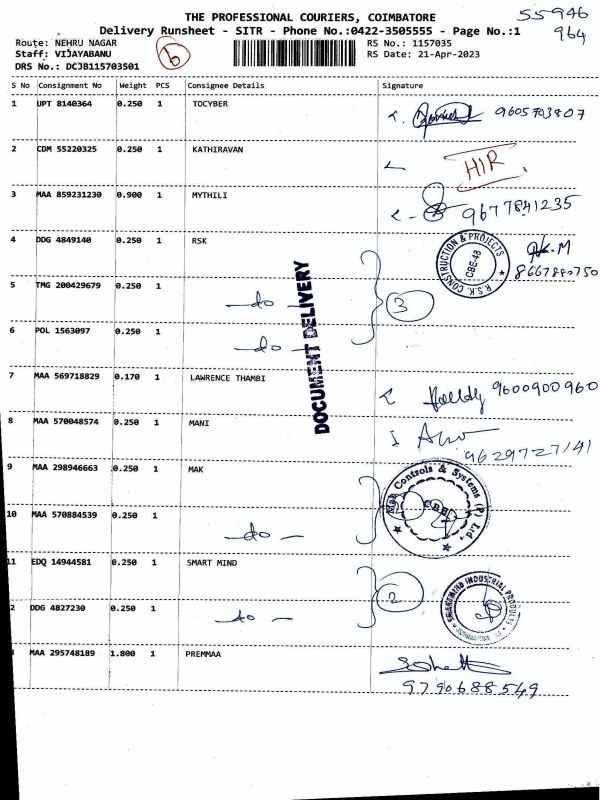 THE PROFESSIONAL COURIERS, COIMBATORE
55946
964
Delivery Runsheet - SITR - Phone No.:0422-3505555 - Page No.:1
Route: NEHRU NAGAR RS No.: 1157035
Staff: VIJAYABANU RS Date: 21-Apr-2023
DRS No.: DCJB115703501
S No Consignment No Weight PCS Consignee Details Signature
1 UPT 8140364 0.250 1 TOCYBER 9605703807
2 CDM 55220325 0.250 1 KATHIRAVAN HIR
3 MAA 859231230 0.900 1 MYTHILI 9677841235
4 DDG 4849140 0.250 1 RSK
R.S.K. CONSTRUCTION & PROJECTS
CBE-48
8667880750
5 TMG 200429679 0.250 1 do
3
6 POL 1563097 0.250 1 do
DOCUMENT DELIVERY
7 MAA 569718829 0.170 1 LAWRENCE THAMBI 9600900960
8 MAA 570048574 0.250 1 MANI
9629727141
9 MAA 298946663 0.250 1 MAK
Controls & Systems (P) Ltd.,
10 MAA 570884539 0.250 1 do
11 EDQ 14944581 0.250 1 SMART MIND
2
SMARTMIND INDUSTRIAL PRODUCTS
2 DDG 4827230 0.250 1 do
MAA 295748189 1.800 1 PREMMAA
9790688549